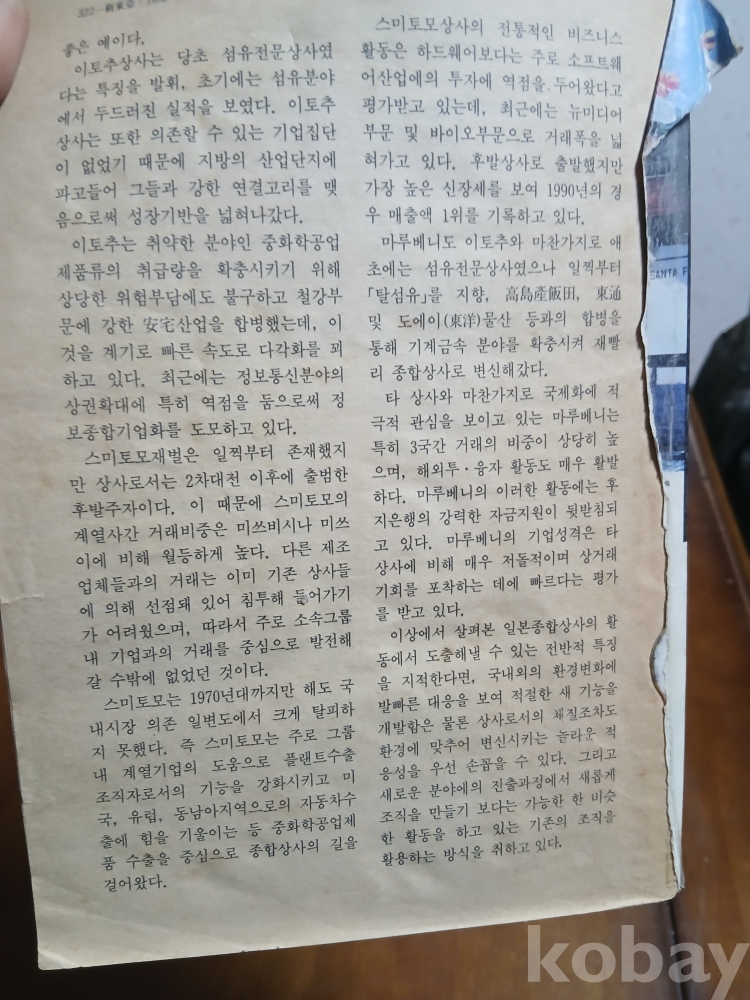 322—新東亞·
좋은 예이다.
이토추상사는 당초 섬유전문상사였
다는 특징을 발휘, 초기에는 섬유분야
에서 두드러진 실적을 보였다. 이토추
상사는 또한 의존할 수 있는 기업집단
이 없었기 때문에 지방의 산업단지에
파고들어 그들과 강한 연결고리를 맺
음으로써 성장기반을 넓혀나갔다.
이토추는 취약한 분야인 중화학공업
제품류의 취급량을 확충시키기 위해
상당한 위험부담에도 불구하고 철강부
문에 강한 安宅산업을 합병했는데, 이
것을 계기로 빠른 속도로 다각화를 꾀
하고 있다. 최근에는 정보통신분야의
상권확대에 특히 역점을 둠으로써 정
보종합기업화를 도모하고 있다.
스미토모재벌은 일찍부터 존재했지
만 상사로서는 2차대전 이후에 출범한
후발주자이다. 이 때문에 스미토모의
계열사간 거래비중은 미쓰비시나 미쓰
이에 비해 월등하게 높다. 다른 제조
업체들과의 거래는 이미 기존 상사들
에 의해 선점돼 있어 침투해 들어가기
가 어려웠으며, 따라서 주로 소속그룹
내 기업과의 거래를 중심으로 발전해
갈 수밖에 없었던 것이다.
스미토모는 1970년대까지만 해도 국
내시장 의존 일변도에서 크게 탈피하
지 못했다. 즉 스미토모는 주로 그룹
내 계열기업의 도움으로 플랜트수출
조직자로서의 기능을 강화시키고 미
국, 유럽, 동남아지역으로의 자동차수
출에 힘을 기울이는 등 중화학공업제
품 수출을 중심으로 종합상사의 길을
걸어왔다.
스미토모상사의 전통적인 비즈니스
활동은 하드웨어보다는 주로 소프트웨
어산업에의 투자에 역점을 두어왔다고
평가받고 있는데, 최근에는 뉴미디어
부문 및 바이오부문으로 거래폭을 넓
혀가고 있다. 후발상사로 출발했지만
가장 높은 신장세를 보여 1990년의 경
우 매출액 1위를 기록하고 있다.
마루베니도 이토추와 마찬가지로 애
초에는 섬유전문상사였으나 일찍부터
「탈섬유」를 지향, 高島産飯田, 東通
및 도에이(東洋)물산 등과의 합병을
통해 기계금속 분야를 확충시켜 재빨
리 종합상사로 변신해갔다.
타 상사와 마찬가지로 국제화에 적
극적 관심을 보이고 있는 마루베니는
특히 3국간 거래의 비중이 상당히 높
으며, 해외투·융자 활동도 매우 활발
하다. 마루베니의 이러한 활동에는 후
지은행의 강력한 자금지원이 뒷받침되
고 있다. 마루베니의 기업성격은 타
상사에 비해 매우 저돌적이며 상거래
기회를 포착하는 데에 빠르다는 평가
를 받고 있다.
이상에서 살펴본 일본종합상사의 활
동에서 도출해낼 수 있는 전반적 특징
을 지적한다면, 국내외의 환경변화에
발빠른 대응을 보여 적절한 새 기능을
개발함은 물론 상사로서의 체질조차도
환경에 맞추어 변신시키는 놀라운 적
응성을 우선 손꼽을 수 있다. 그리고
새로운 분야에의 진출과정에서 새롭게
조직을 만들기 보다는 가능한 한 비슷
한 활동을 하고 있는 기존의 조직을
활용하는 방식을 취하고 있다.
SANTA F
kobay